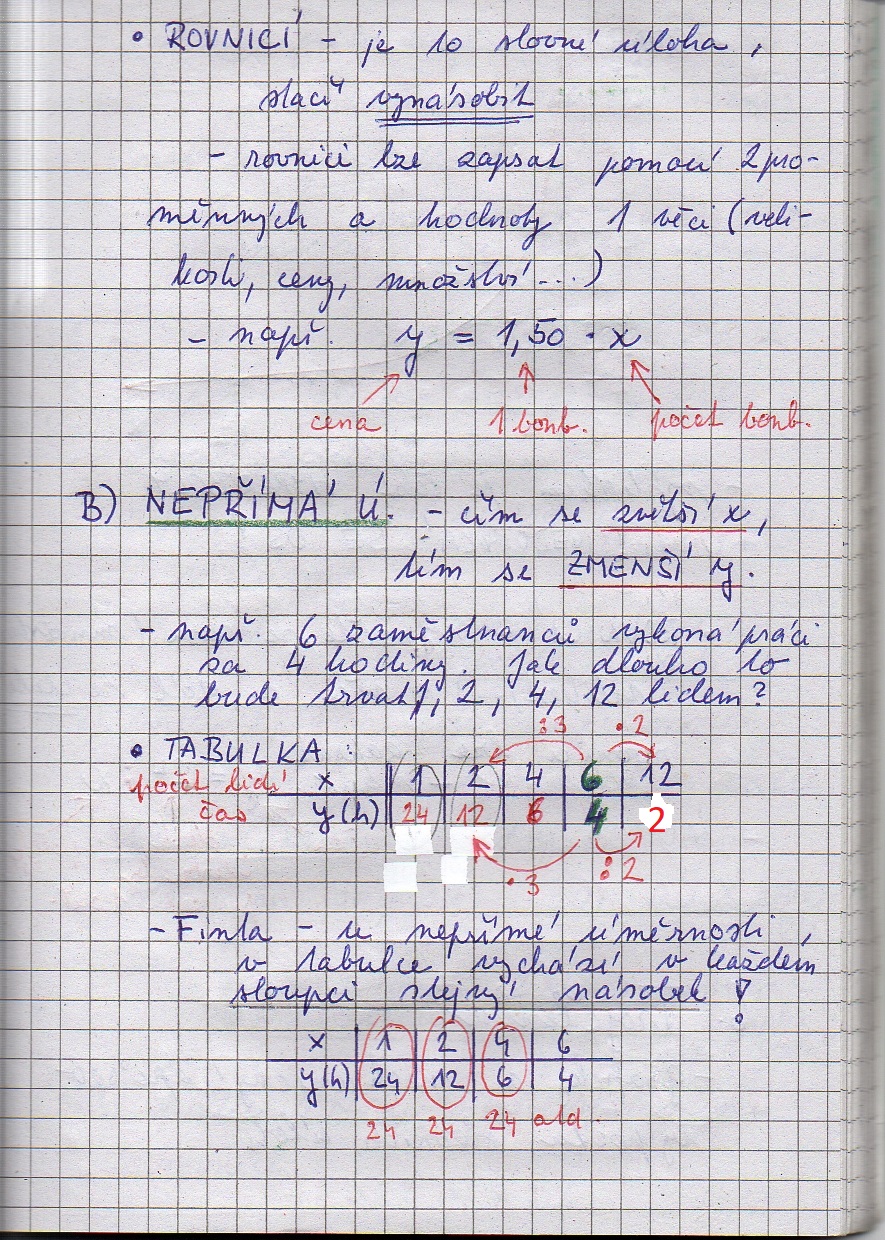 • ROVNICÍ - je to slovní úloha,
stačí vynásobit
- rovnici lze zapsat pomocí 2 pro-
měnných a hodnoty 1 věci (veli-
kosti, ceny, množství...)
- např. y = 1,50 · x
cena 1 bonb. počet bonb.
B) NEPŘÍMÁ Ú. - čím se zvětší x,
tím se ZMENŠÍ y.
- např. 6 zaměstnanců vykoná práci
za 4 hodiny. Jak dlouho to
bude trvat 1, 2, 4, 12 lidem?
:3 ·2
• TABULKA:
počet lidí x 1 2 4 6 12
čas y(h) 24 12 6 4 2
·3 :2
- Finta - u nepřímé úměrnosti,
v tabulce vychází v každém
sloupci stejný násobek!
x 1 2 4 6
y(h) 24 12 6 4
24 24 24 atd.